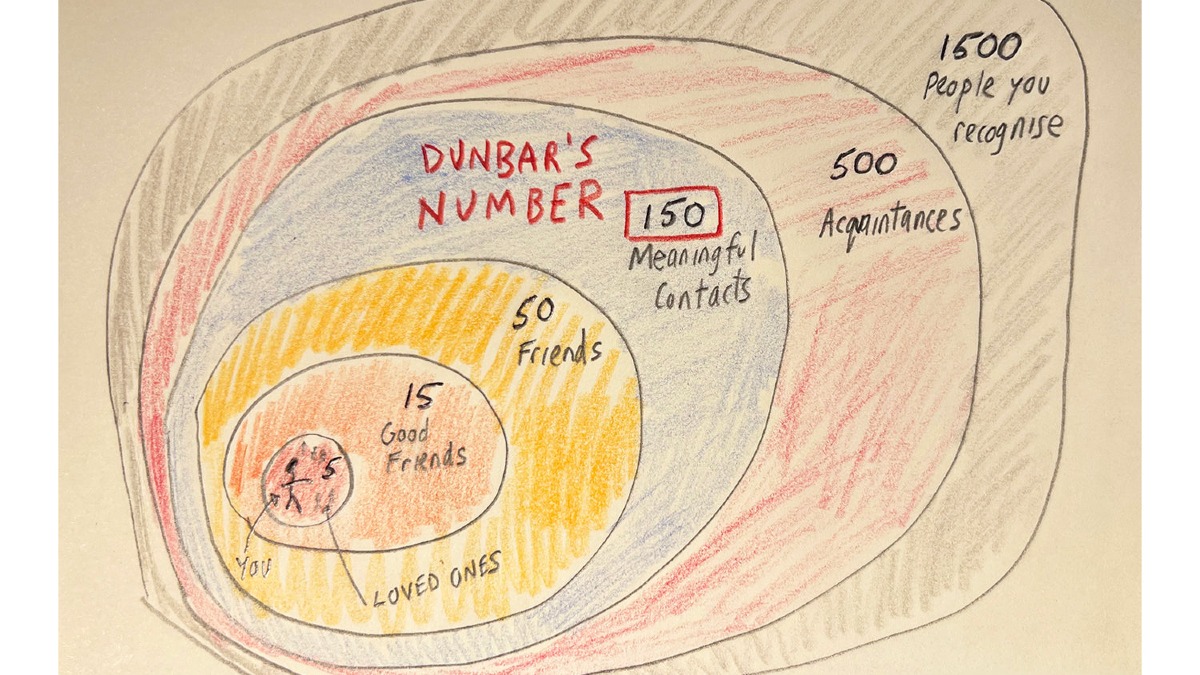 1500
People you
recognise
500
Acquaintances
DUNBAR'S
NUMBER
150
Meaningful
Contacts
50
Friends
15
Good
Friends
5
YOU
LOVED ONES